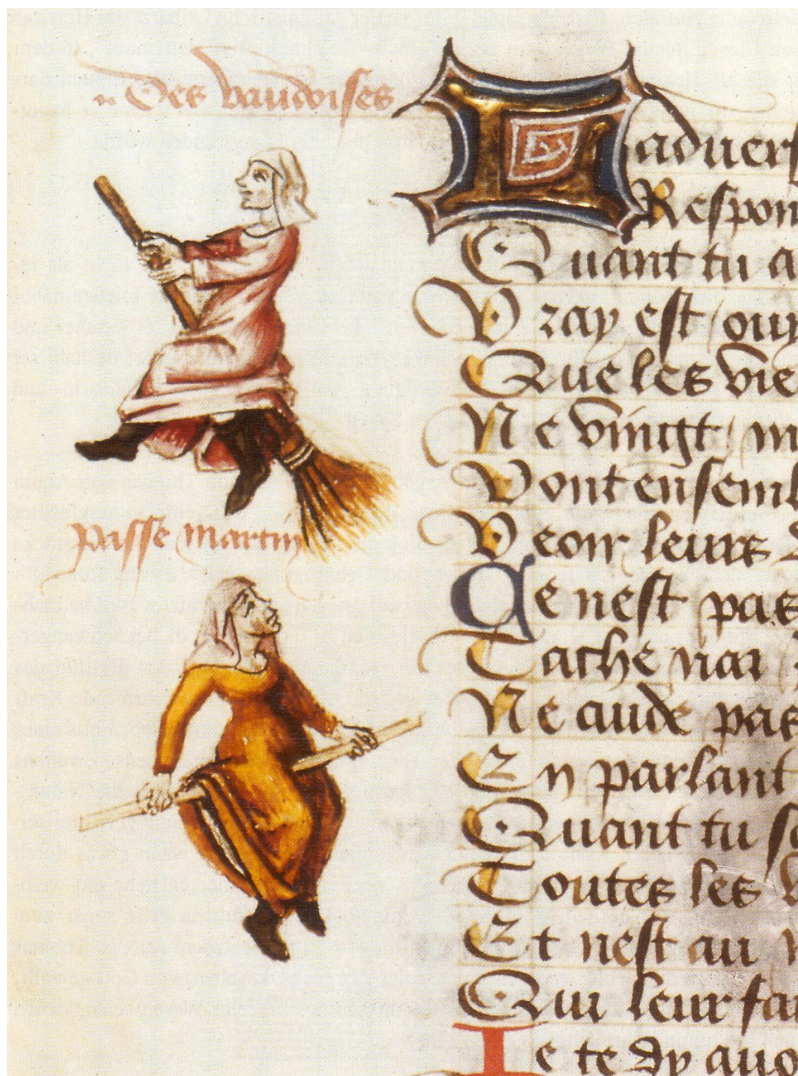 Des vaudoises
passe martin
Ladvers
Respon
Quant tu a
Vray est ouy
Que les vie
Ne vingt m
Vont ensembl
Veoir leurs d
Ce nest pas
Tache nar
Ne cuide pas
En parlant
Quant tu s
Toutes les v
Et nest au
Qui leur fa
Je te dy quo